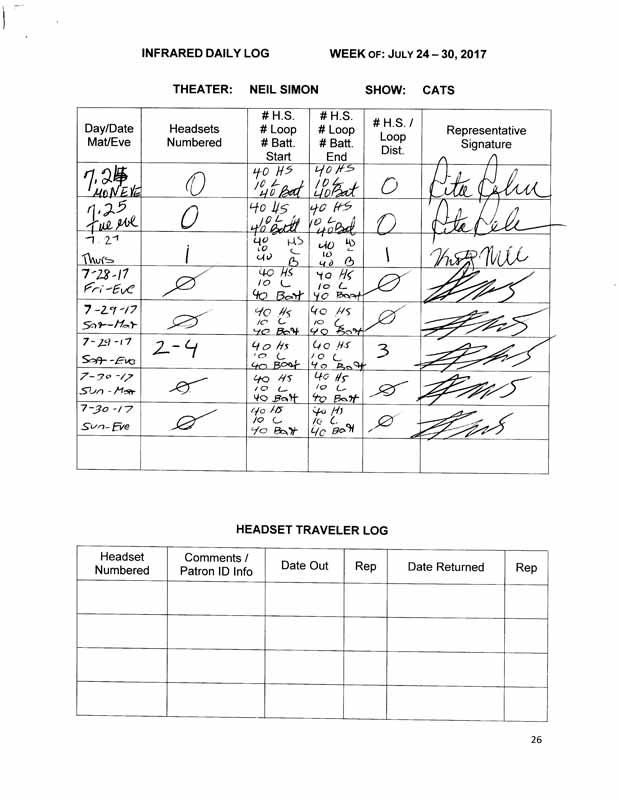 INFRARED DAILY LOG WEEK OF: JULY 24 – 30, 2017
THEATER: NEIL SIMON SHOW: CATS
Day/Date
Mat/Eve
Headsets
Numbered
# H.S.
# Loop
# Batt.
Start
# H.S.
# Loop
# Batt.
End
# H.S. /
Loop
Dist.
Representative
Signature
7.24
MON EVE
0
40 HS
10 L
40 Bat
40 HS
10 L
40 Bat
0
7.25
Tue eve
0
40 HS
10 L
40 Batt
40 HS
10 L
40 Bat
0
7.27
Thurs
1
40 HS
10 L
40 B
40 HS
10 L
40 B
1
7-28-17
Fri-Eve
Ø
40 HS
10 L
40 Batt
40 HS
10 L
40 Batt
Ø
7-29-17
Sat-Mat
Ø
40 HS
10 L
40 Batt
40 HS
10 L
40 Batt
Ø
7-29-17
Sat-Eve
2-4
40 HS
10 L
40 Batt
40 HS
10 L
40 Batt
3
7-30-17
Sun-Mat
Ø
40 HS
10 L
40 Batt
40 HS
10 L
40 Batt
Ø
7-30-17
Sun-Eve
Ø
40 HS
10 L
40 Batt
40 HS
10 L
40 Batt
Ø
HEADSET TRAVELER LOG
Headset
Numbered
Comments /
Patron ID Info
Date Out
Rep
Date Returned
Rep
26